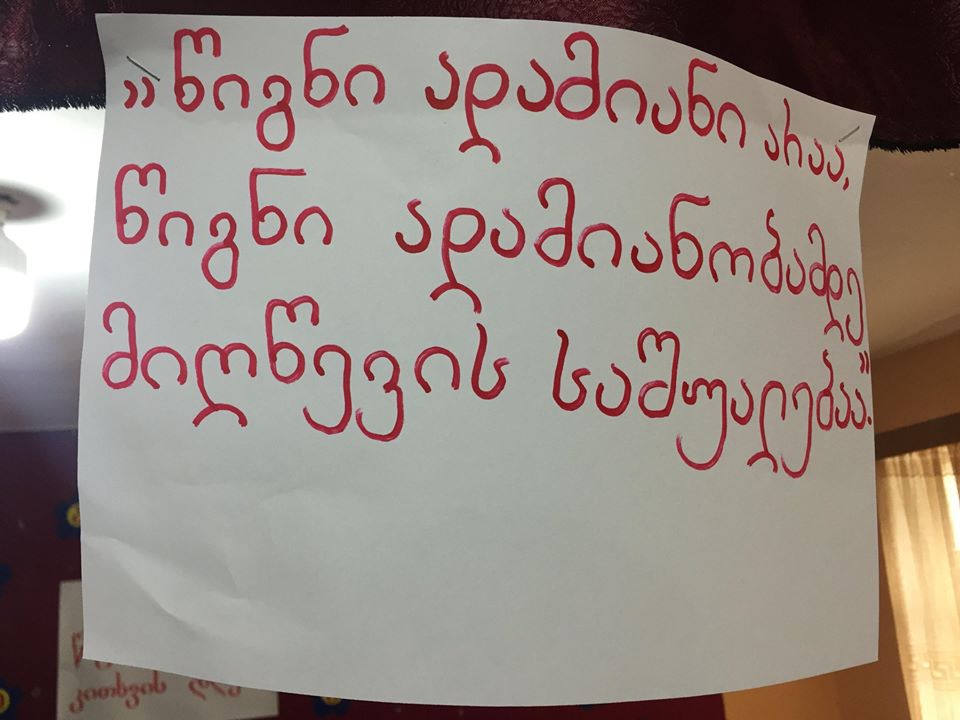 „წიგნი ადამიანი არაა,
წიგნი ადამიანობამდე
მიღწევის საშუალებაა.”
კითხვის დღე